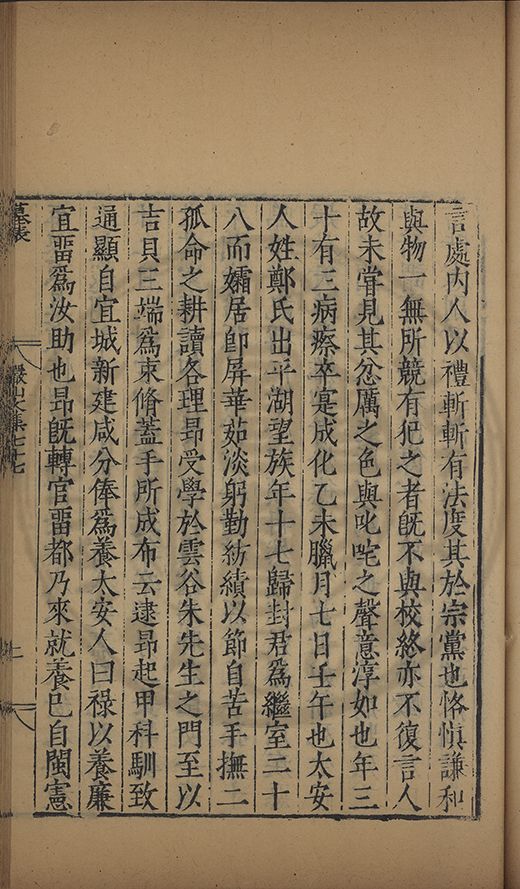 言處內人以禮斬斬有法度其於宗黨也恪愼謙和
與物一無所競有犯之者旣不與校終亦不復言人
故未甞見其忿厲之色與叱咤之聲意淳如也年三
十有三病瘵卒寔成化乙未臘月七日壬午也太安
人姓鄭氏出平湖望族年十七歸封君爲繼室二十
八而孀居卽屏華茹淡躬勤紡績以節自苦手撫二
孤命之耕讀各理昂受學於雲谷朱先生之門至以
吉貝三端爲束脩蓋手所成布云逮昂起甲科馴致
通顯自宜城新建咸分俸爲養太安人曰祿以養廉
宜畱爲汝助也昂旣轉官畱都乃來就養巳自閩憲
墓表
儼山文集七十七